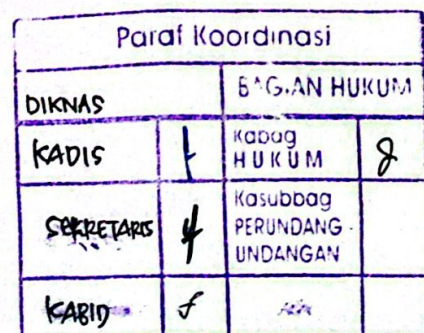 Paraf Koordinasi
DIKNAS
BAGIAN HUKUM
KADIS
Kabag
HUKUM
SEKRETARIS
Kasubbag
PERUNDANG -
UNDANGAN
KABID